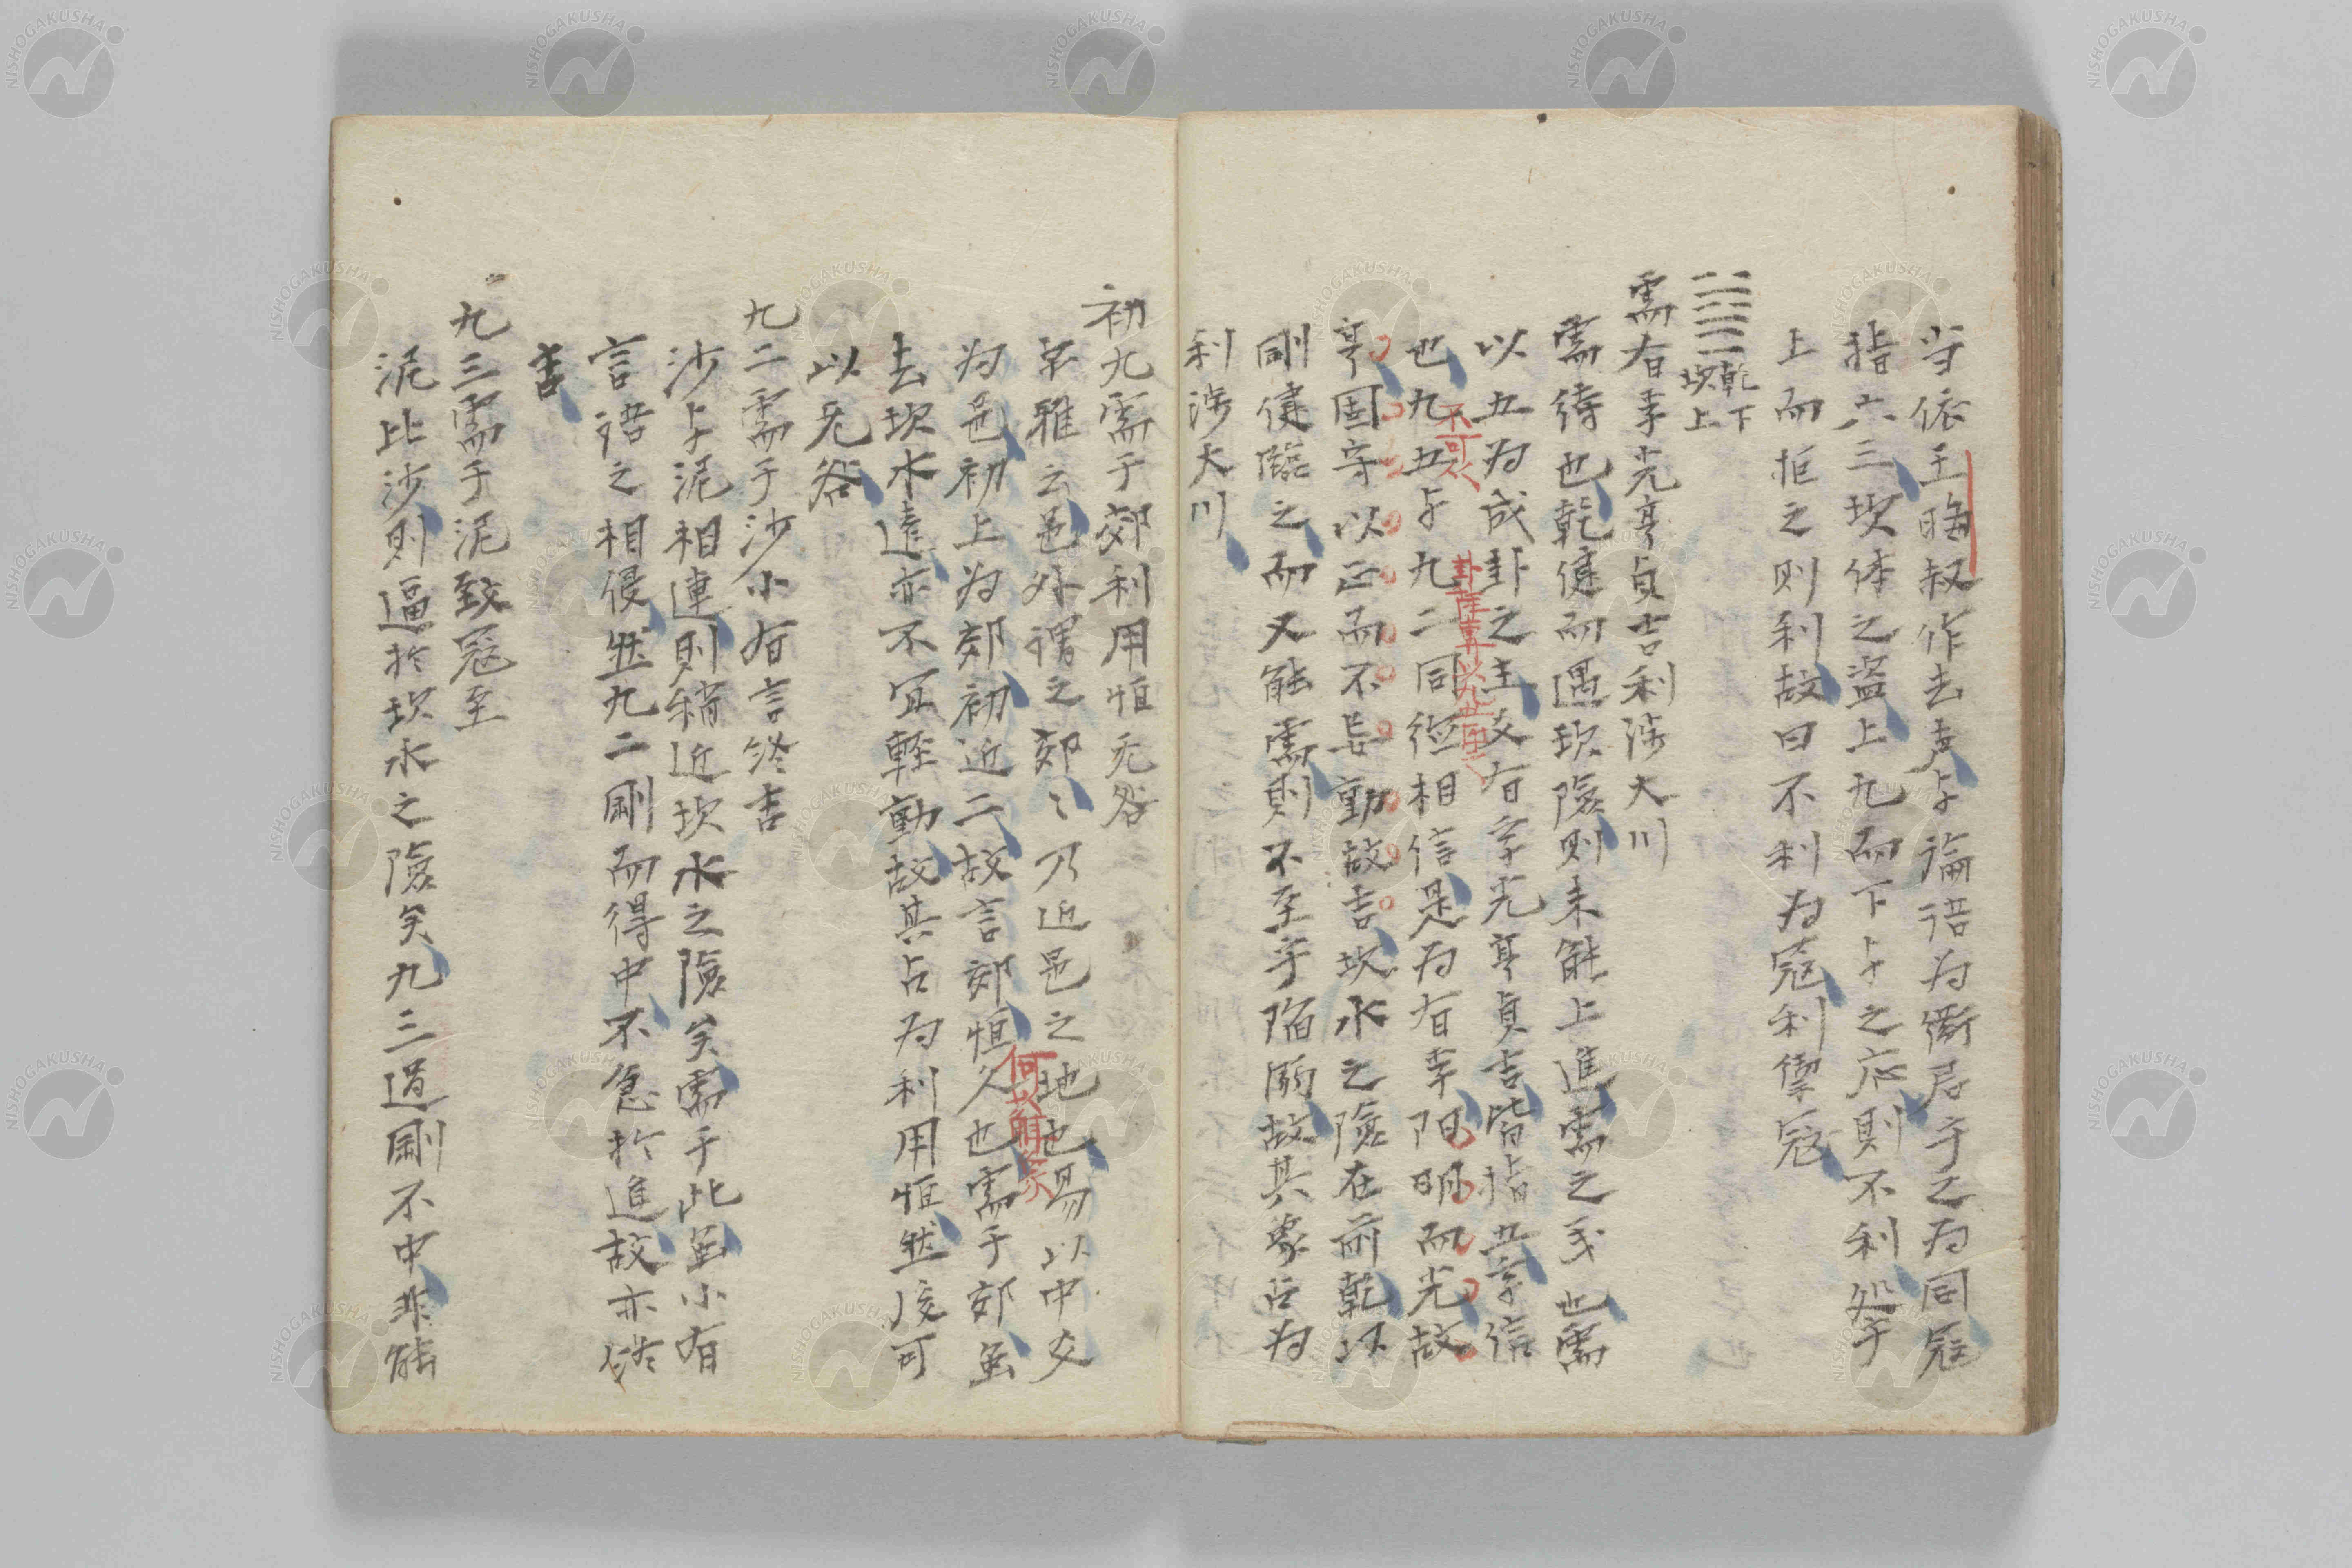 当依王晦叔作去声与論語為衛君乎之為同冦
指六三坎体之盗上九而下与之応則不利処于
上而拒之則利故曰不利為冦利禦冦
䷄乾下坎上
需有孚光亨貞吉利渉大川
需待也乾健而遇坎険則未能上進需之義也需
以五為成卦之主爻有孚光亨貞吉皆指五孚信
也九五与九二同徳相信是為有孚陽明而光故
不可以
卦
亨固守以正而不妄動故吉坎水之険在前乾以
剛健臨之而又能需則不至乎陥溺故其象占為
利渉大川
初九需于郊利用恒无咎
尓雅云邑外謂之郊〻乃近邑之地也易以中爻
何以解象
為邑初上為郊初近二故言郊恒久也需于郊虽
去坎水遠亦不宜軽動故其占為利用恒然後可
以无咎
九二需于沙小有言終吉
沙与泥相連則稍近坎水之険矣需于此虽小有
言語之相侵然九二剛而得中不急於進故亦終
吉
九三需于泥致冦至
泥比沙則逼於坎水之険矣九三過剛不中非能
NISHOGAKUSHA